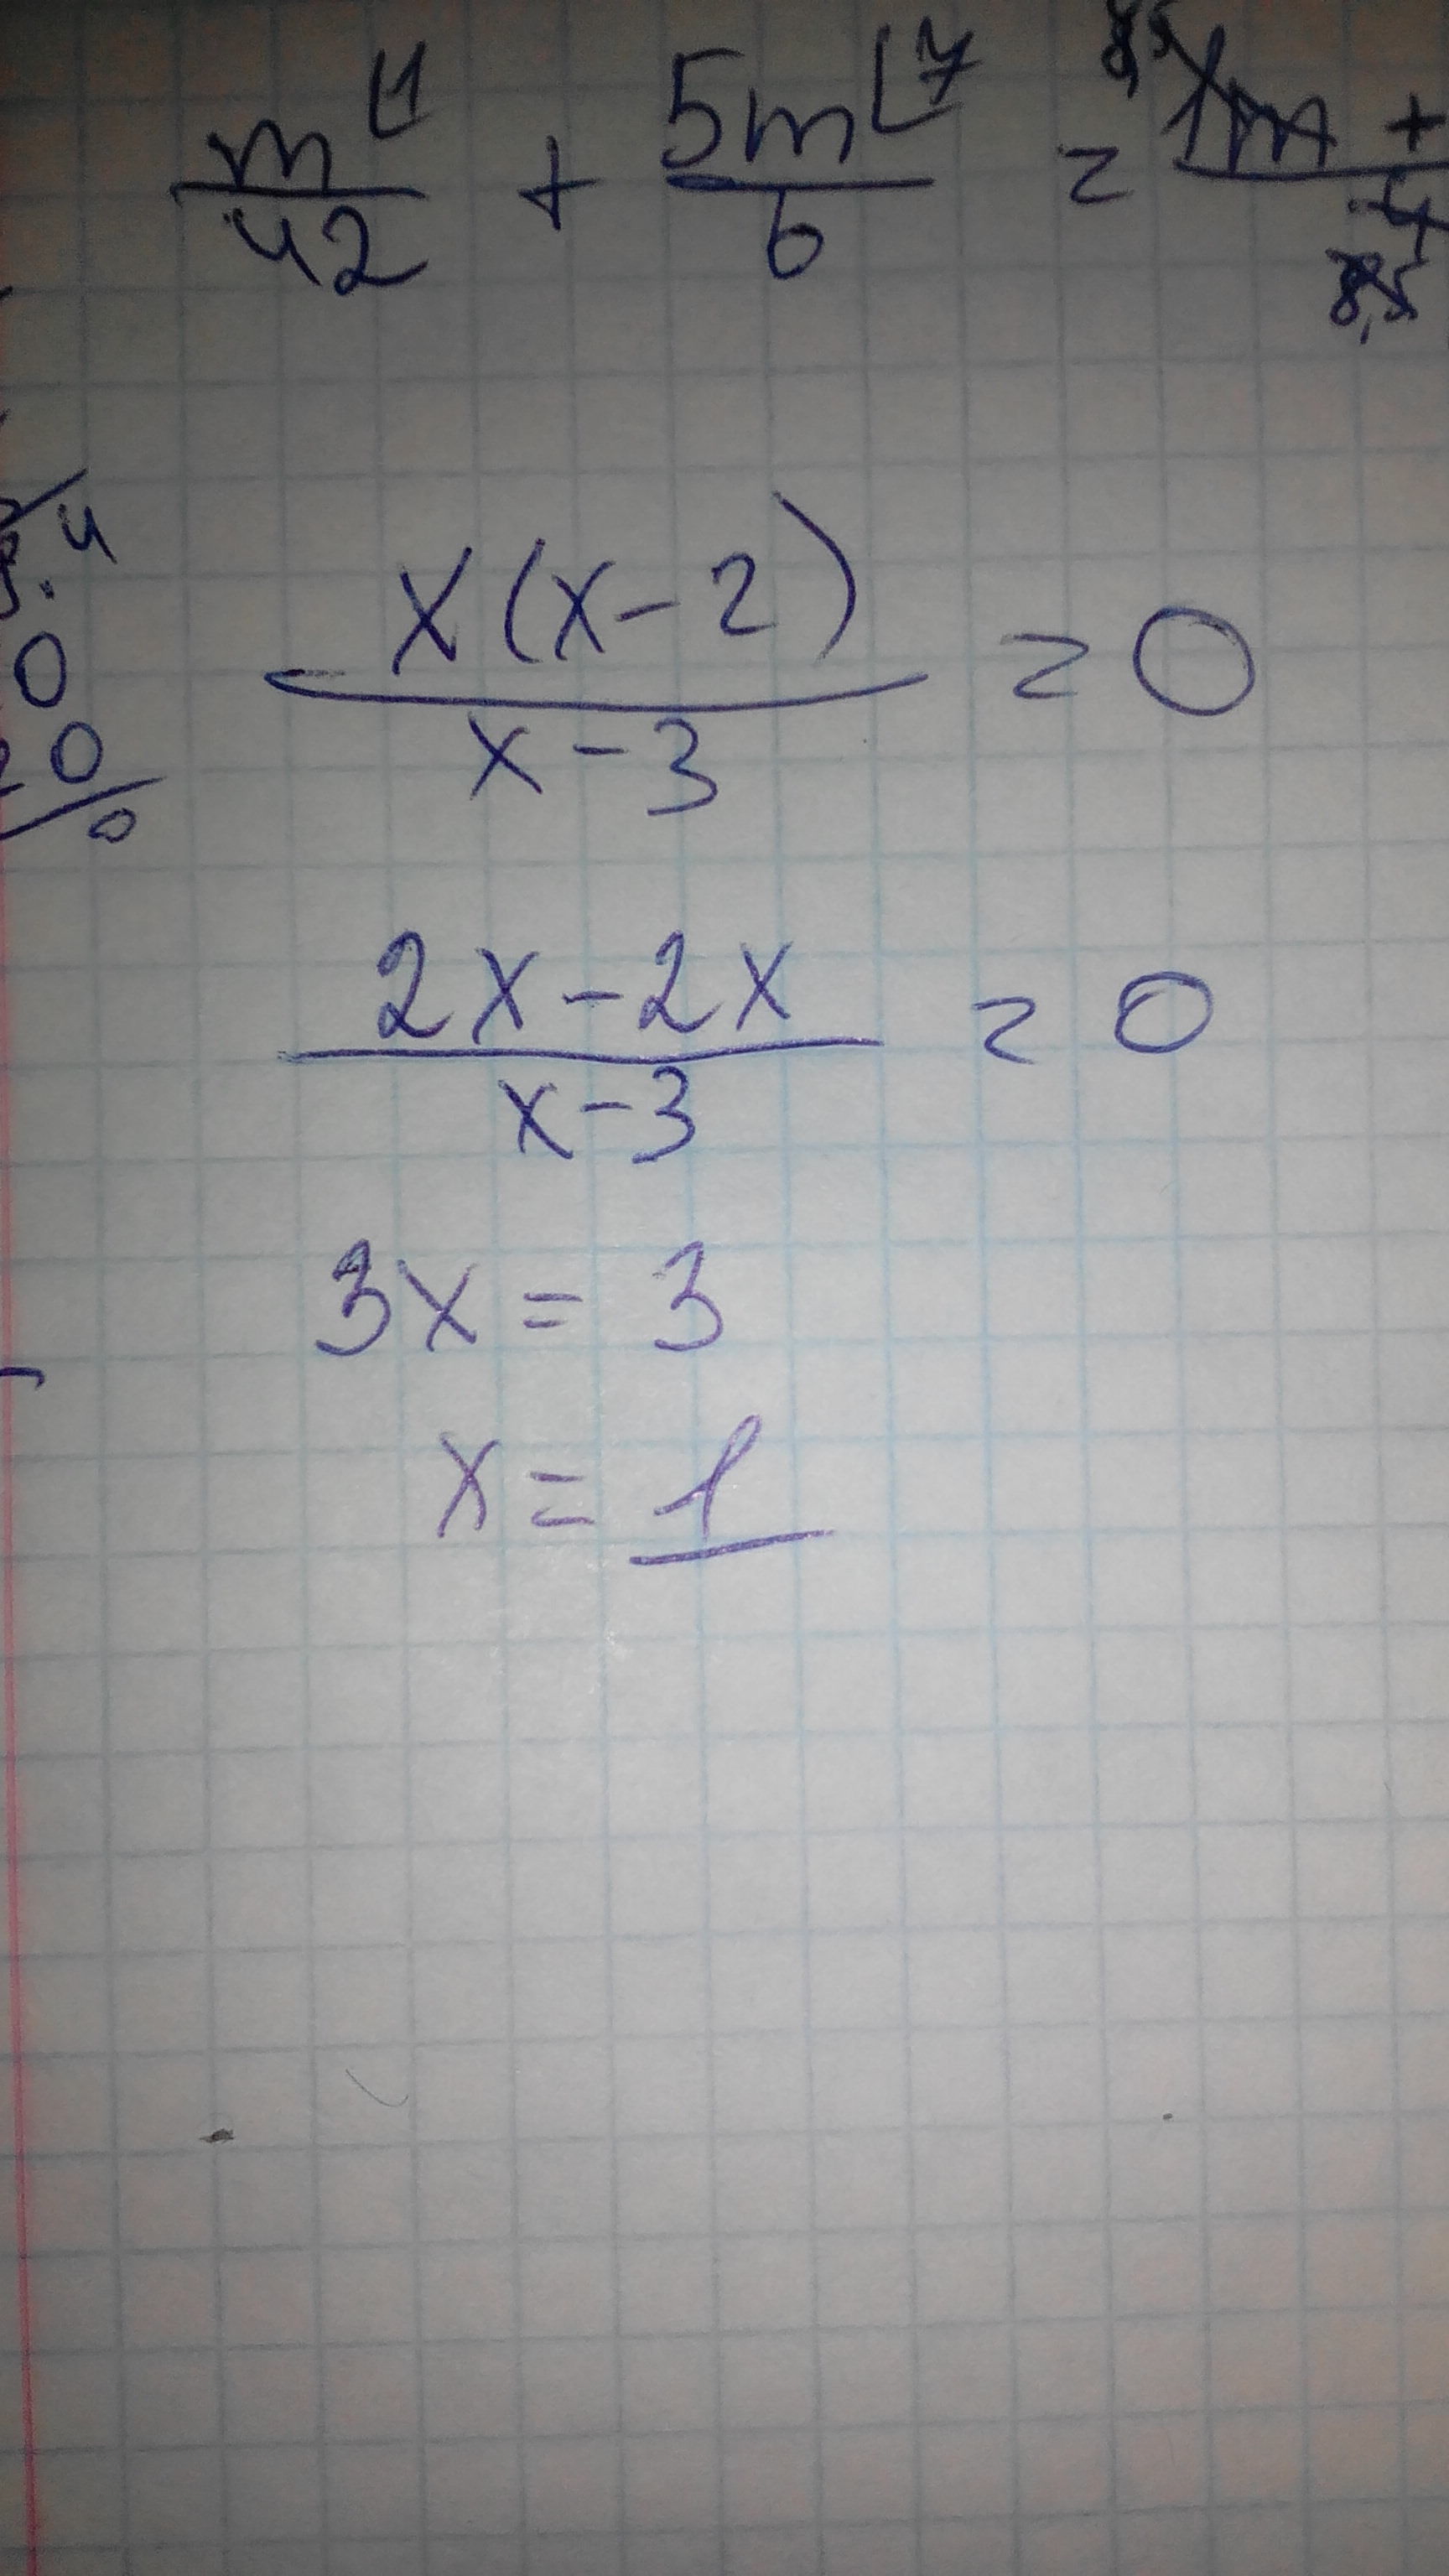 m⌊1/42 + 5m⌊7/6 = m +
x(x-2)/x-3 = 0
2x-2x/x-3 = 0
3x = 3
x = 1